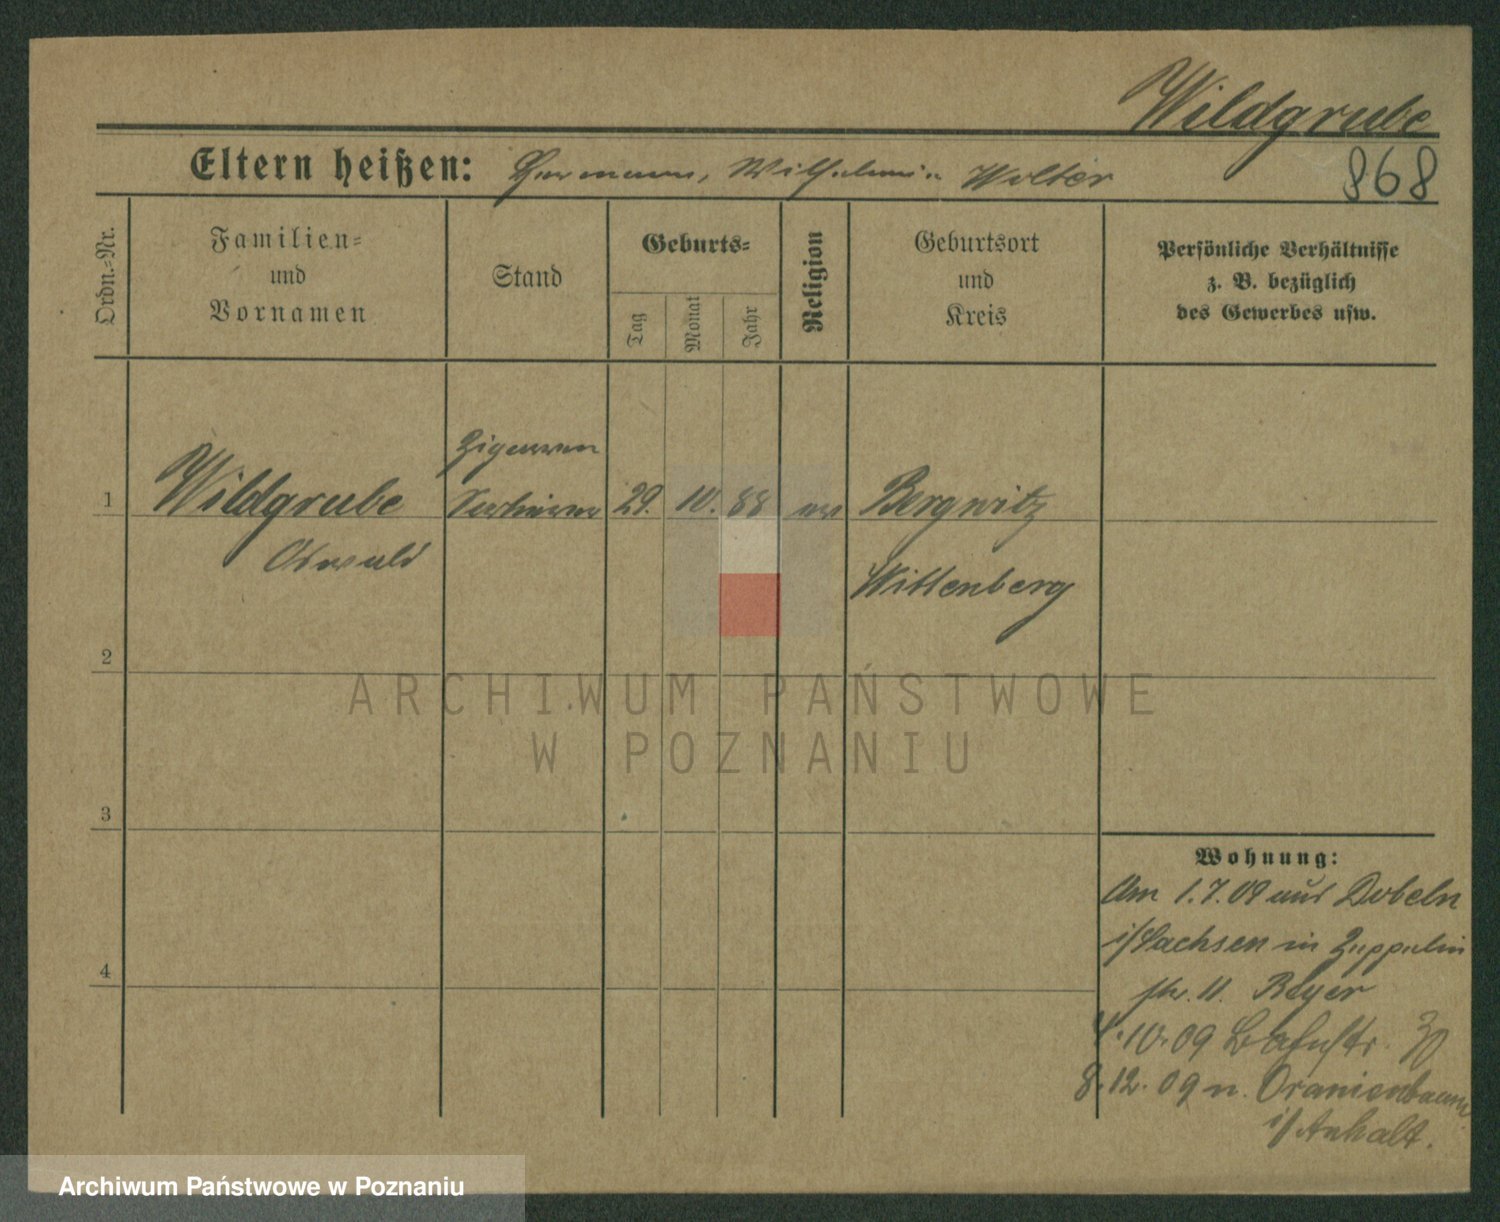 Wildgrube
Eltern heißen: Hermann, Wilhelmin Wolter
868
Ordn.-Nr.
Familien-
und
Vornamen
Stand
Geburts-
Tag
Monat
Jahr
Religion
Geburtsort
und
Kreis
Persönliche Verhältnisse
z. B. bezüglich
des Gewerbes usw.
Zigarren
1 Wildgrube Sortierer 29. 10. 88 ev Bergwitz
Oswald
Wittenberg
2
3
4
Wohnung:
Am 1.7.09 aus Döbeln
i/Sachsen in Zeppelin
str. 11. Beyer
4.10.09 Bahnstr. 30
8.12.09 n. Oranienbaum
i/Anhalt.
ARCHIWUM PAŃSTWOWE
W POZNANIU
Archiwum Państwowe w Poznaniu